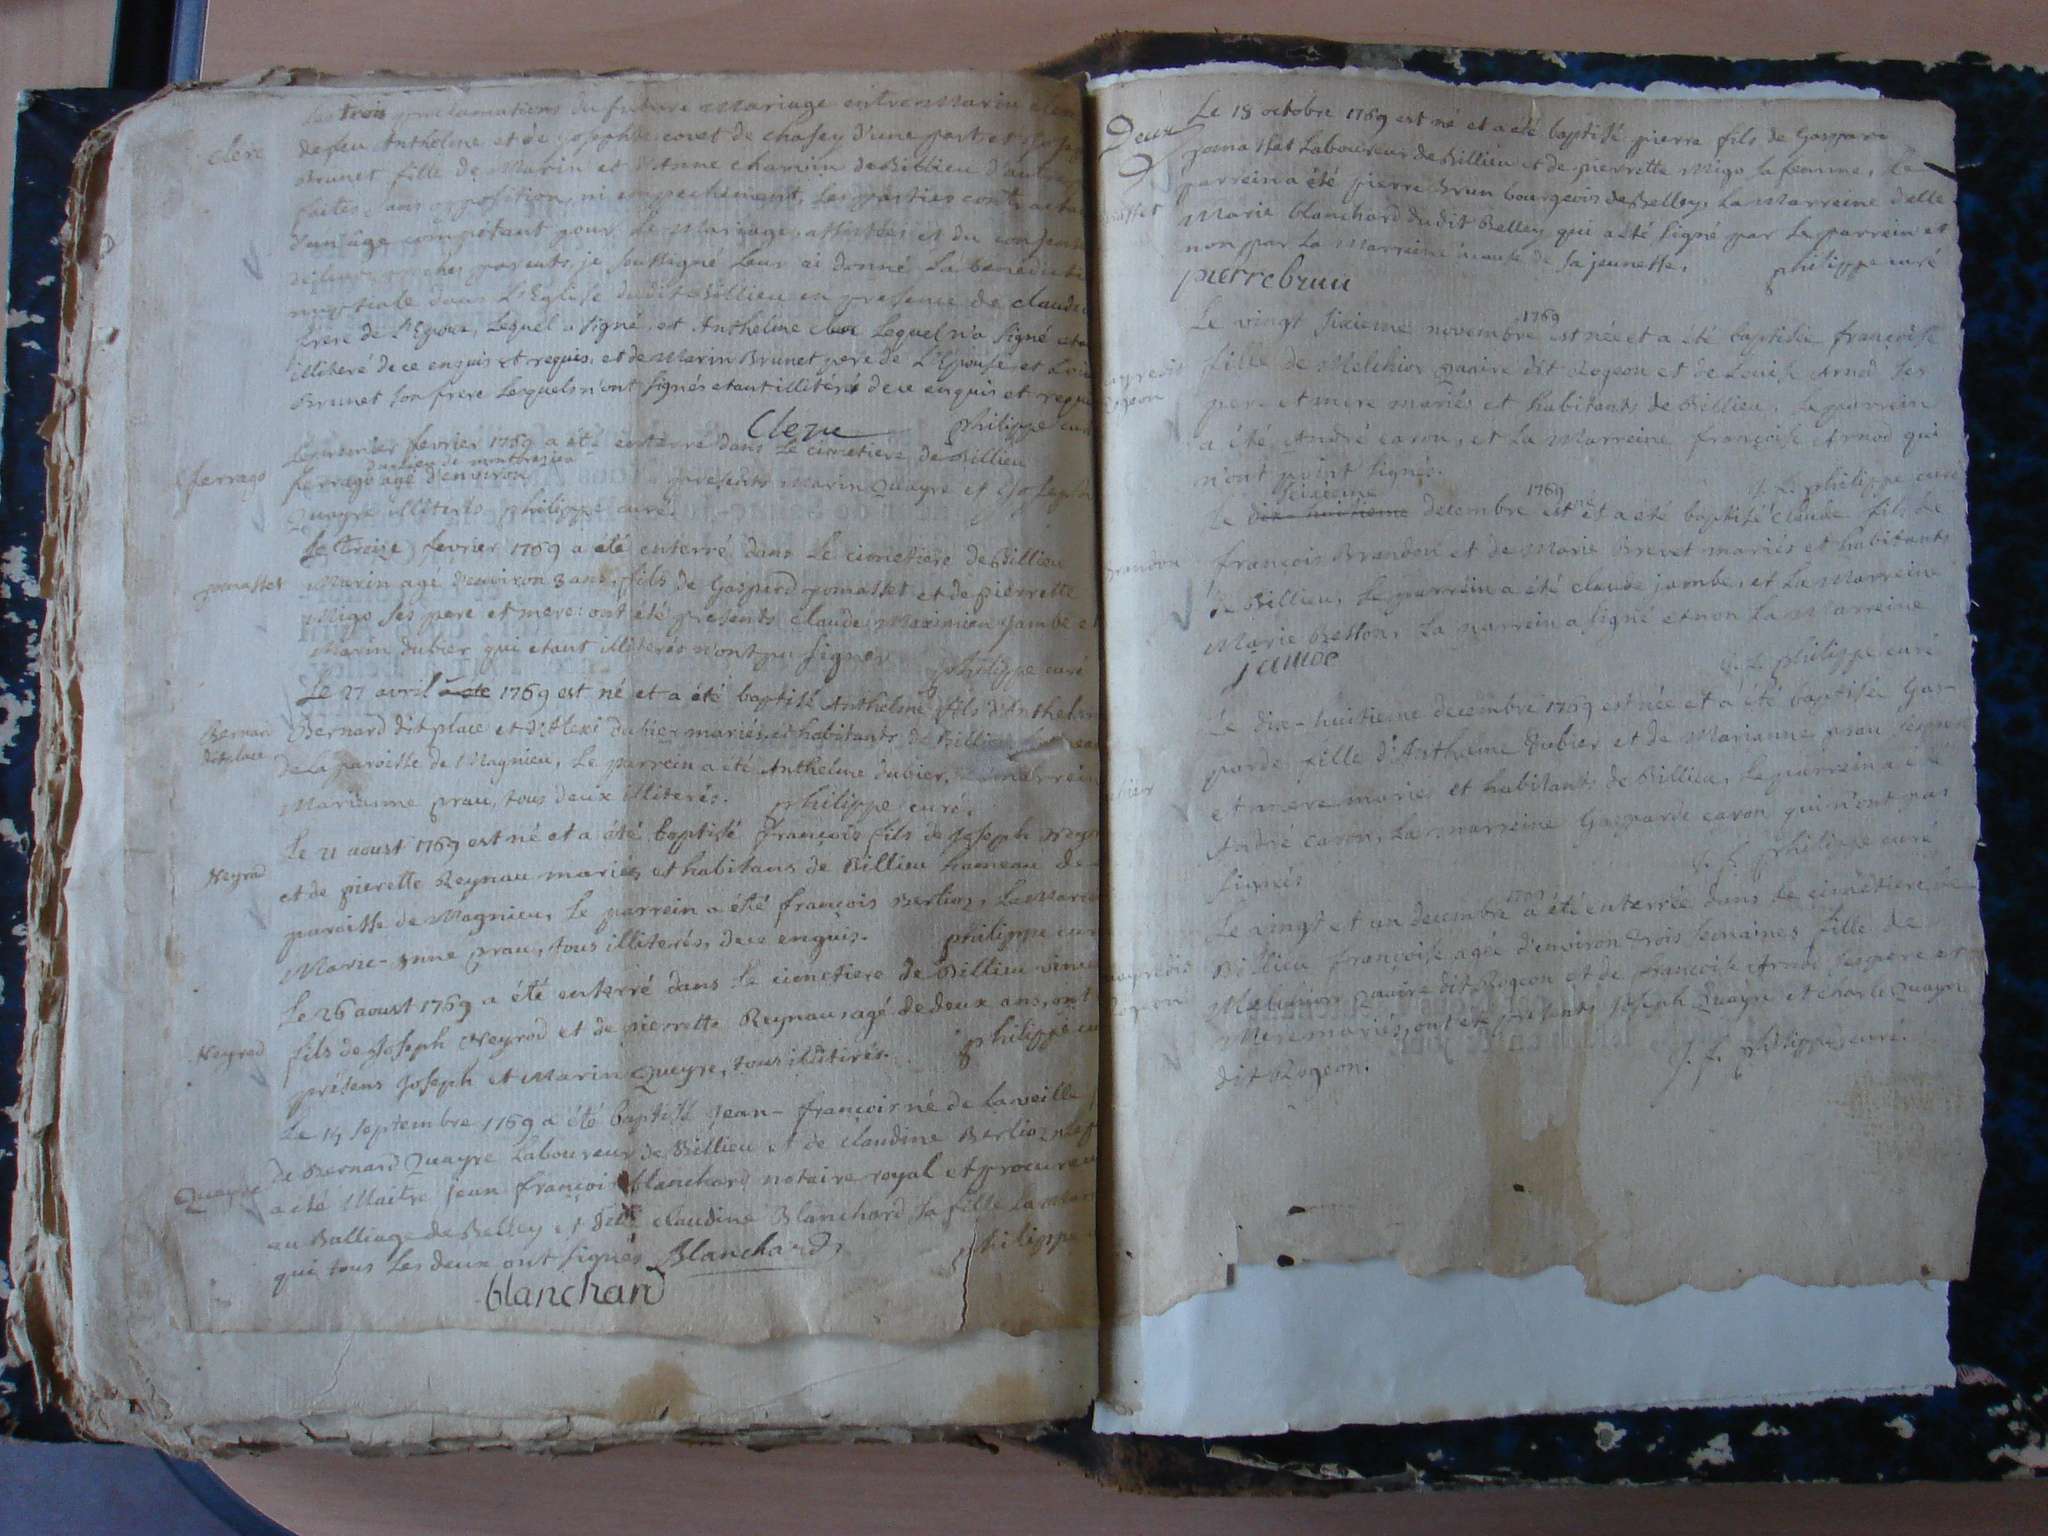 Les trois proclamations du futur mariage entre Marin
clerc
de feu Anthelme et de josephte covet de chasey d'une part et
Brunet fille de Marin et d'Anne charvin de Billieu d'autre
faites sans opposition, ni empechement, les parties
d'un âge competant pour le Mariage, assistées et du
proches parents, je soussigné leur ai donné la
nuptiale dans l'Eglise dudit Billieu en presence de claude
frere de l'Epoux, lequel a signé, et Anthelme clerc lequel n'a signé
illiteré de ce enquis et requis, et de Marin Brunet pere de l'Epouse, et
Brunet son frere lesquels n'ont signés etant illitérés de ce enquis et
Clerc philippe curé
Le premier fevrier 1769 a été enterré dans le cimetiere de Billieu
ferrago
ferrago agé d'environ presents Marin Quayre et Joseph
Quayre illiterés philippe curé.
Le treize fevrier 1769 a été enterré dans le cimetiere de Billieu
pomattet
Marin agé d'environ 3 ans, fils de Gaspard pomattet et de pierrette
Migo ses pere et mere: ont été presents claude Maximien jambe et
Marin dubier qui etant illiterés n'ont pu signer philippe curé
Le 27 avril 1769 est né et a été baptisé Anthelme fils d'Anthelme
Bernard
dit place
Bernard dit place et d'Alexi dubier mariés et habitants de Billieu
de la paroisse de Magnieu, Le parrein a été Anthelme dubier, marreine
Marianne prau, tous deux illiterés. philippe curé.
Le 21 aoust 1769 est né et a été baptisé françois fils de Joseph
Neyrod
et de pierette Reynau mariés et habitans de Billieu hameau de
paroisse de Magnieu, Le parrein a été françois Berlioz, La
Marie-anne prau, tous illiterés, deux enquis. philippe curé
Le 26 aoust 1769 a été enterré dans le cimetiere de Billieu
Neyrod
fils de Joseph Neyrod et de pierrette Reynau agé de deux ans, ont
présens Joseph et Marin Queyre, tous illitirés. philippe
Le 14 septembre 1769 a été baptisé Jean-françois né de la veille
Quayre
de Bernard Quayre Laboureur de Billieu et de claudine Berlioz
a été Maitre jean françois blanchard notaire royal et procureur
au Balliage de Belley et claudine Blanchard sa fille
qui tous les deux ont signés Blanchard philippe
blanchard
Deux
Le 18 octobre 1769 est né et a été baptisé pierre fils de Gaspard
pomattet Laboureur de Billieu et de pierrette Migo sa femme, Le
parrein a été pierre Brun bourgeois de Belley, La Marreine dlle
Marie blanchard du dit Belley qui a été signé par le parrein et
non par la Marreine à cause de sa jeunesse. philippe curé
pierre brun
Le vingt sixieme novembre 1769 est née et a été baptisée françoise
Rogeon
fille de Melchior quaire dit Rogeon et de Louise Arnod ses
pere et mere mariés et habitants de Billieu, Le parrein
a été André caron, et La Marreine françoise Arnod qui
n'ont point signés. J. f. philippe curé
seizieme
Le dix-huitieme decembre 1769 est né et a été baptisé claude fils de
Brandon
françois Brandon et de Marie Brevet mariés et habitants
de Billieu, Le parrein a été claude jambe, et La Marreine
Marie Besson, La parrein a signé et non La Marreine
jambe J. f. philippe curé
Le dix-huitieme decembre 1769 est née et a été baptisée Gas-
parde fille d'Anthelme Dubier et de Marianne prau ses pere
et mere mariés et habitants de Billieu, Le parrein a été
André caron, La marreine Gasparde caron qui n'ont pas
signés J. f. philippe curé
Le vingt et un decembre 1769 a été enterrée dans le cimetiere de
Billieu françoise agée d'environ trois semaines fille de
Rogeon
Melchior quaire dit Rogeon et de françoise Arnod ses pere et
Mere mariés, ont eté presents Joseph Quayre et charle Quayre
dit Rogeon. J. f. philippe curé.